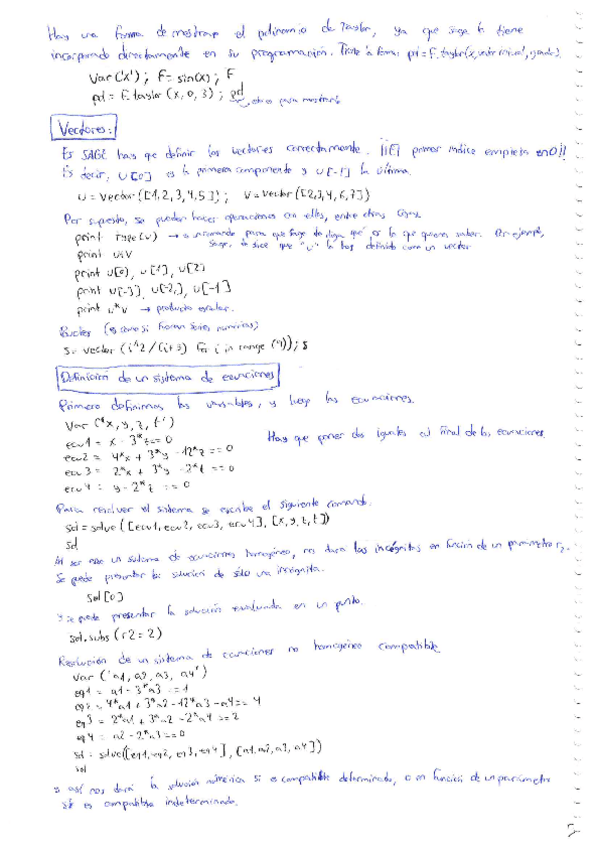 Hay una forma de mostrar el polinomio de Taylor, ya que sage lo tiene
incorporado directamente en su programación. Tiene la forma: pol=F.taylor(x,valor inicial,grado).
var('x'); F=sin(x); F
pol = F.taylor(x,0,3); pol
para mostrarlo
Vectores:
En SAGE hay que definir los vectores correctamente. ¡¡El primer índice empieza en 0!!
Es decir, u[0] es la primera componente y u[-1] la última.
u = vector([1,2,3,4,5]); v = vector([2,3,4,6,7])
Por supuesto, se pueden hacer operaciones con ellos, entre otras cosas.
print type(u) → un comando para que Sage te diga qué es lo que quieres saber. Por ejemplo,
Sage te dice que "u" lo has definido como un vector
print u+v
print u[0], u[1], u[2]
print u[-3], u[-2], u[-1]
print u*v → producto escalar.
Bucles (es como si fueran series numéricas)
s = vector(i^2/(i+3) for i in range(4)); s
Definición de un sistema de ecuaciones
Primero definimos las variables, y luego las ecuaciones.
var('x,y,z,t')
ecu1 = x - 3*t == 0
Hay que poner dos iguales al final de las ecuaciones.
ecu2 = 4*x + 3*y - 12*z == 0
ecu3 = 2*x + 3*y - 2*t == 0
ecu4 = y - 2*t == 0
Para resolver el sistema se escribe el siguiente comando.
sol = solve([ecu1, ecu2, ecu3, ecu4], [x,y,z,t])
sol
Al ser este un sistema de ecuaciones homogéneo, nos dará las incógnitas en función de un parámetro r2.
Se puede presentar la solución de sólo una incógnita.
sol[0]
Y se puede presentar la solución evaluada en un punto.
sol.subs(r2=2)
Resolución de un sistema de ecuaciones no homogéneo compatible
var('a1, a2, a3, a4')
eq1 = a1 - 3*a3 == 1
eq2 = 4*a1 + 3*a2 - 12*a3 - a4 == 4
eq3 = 2*a1 + 3*a2 - 2*a4 == 2
eq4 = a2 - 2*a3 == 0
sol = solve([eq1, eq2, eq3, eq4], [a1, a2, a3, a4])
sol
y así nos dará la solución numérica si es compatible determinado, o en función de un parámetro
si es compatible indeterminado.
5